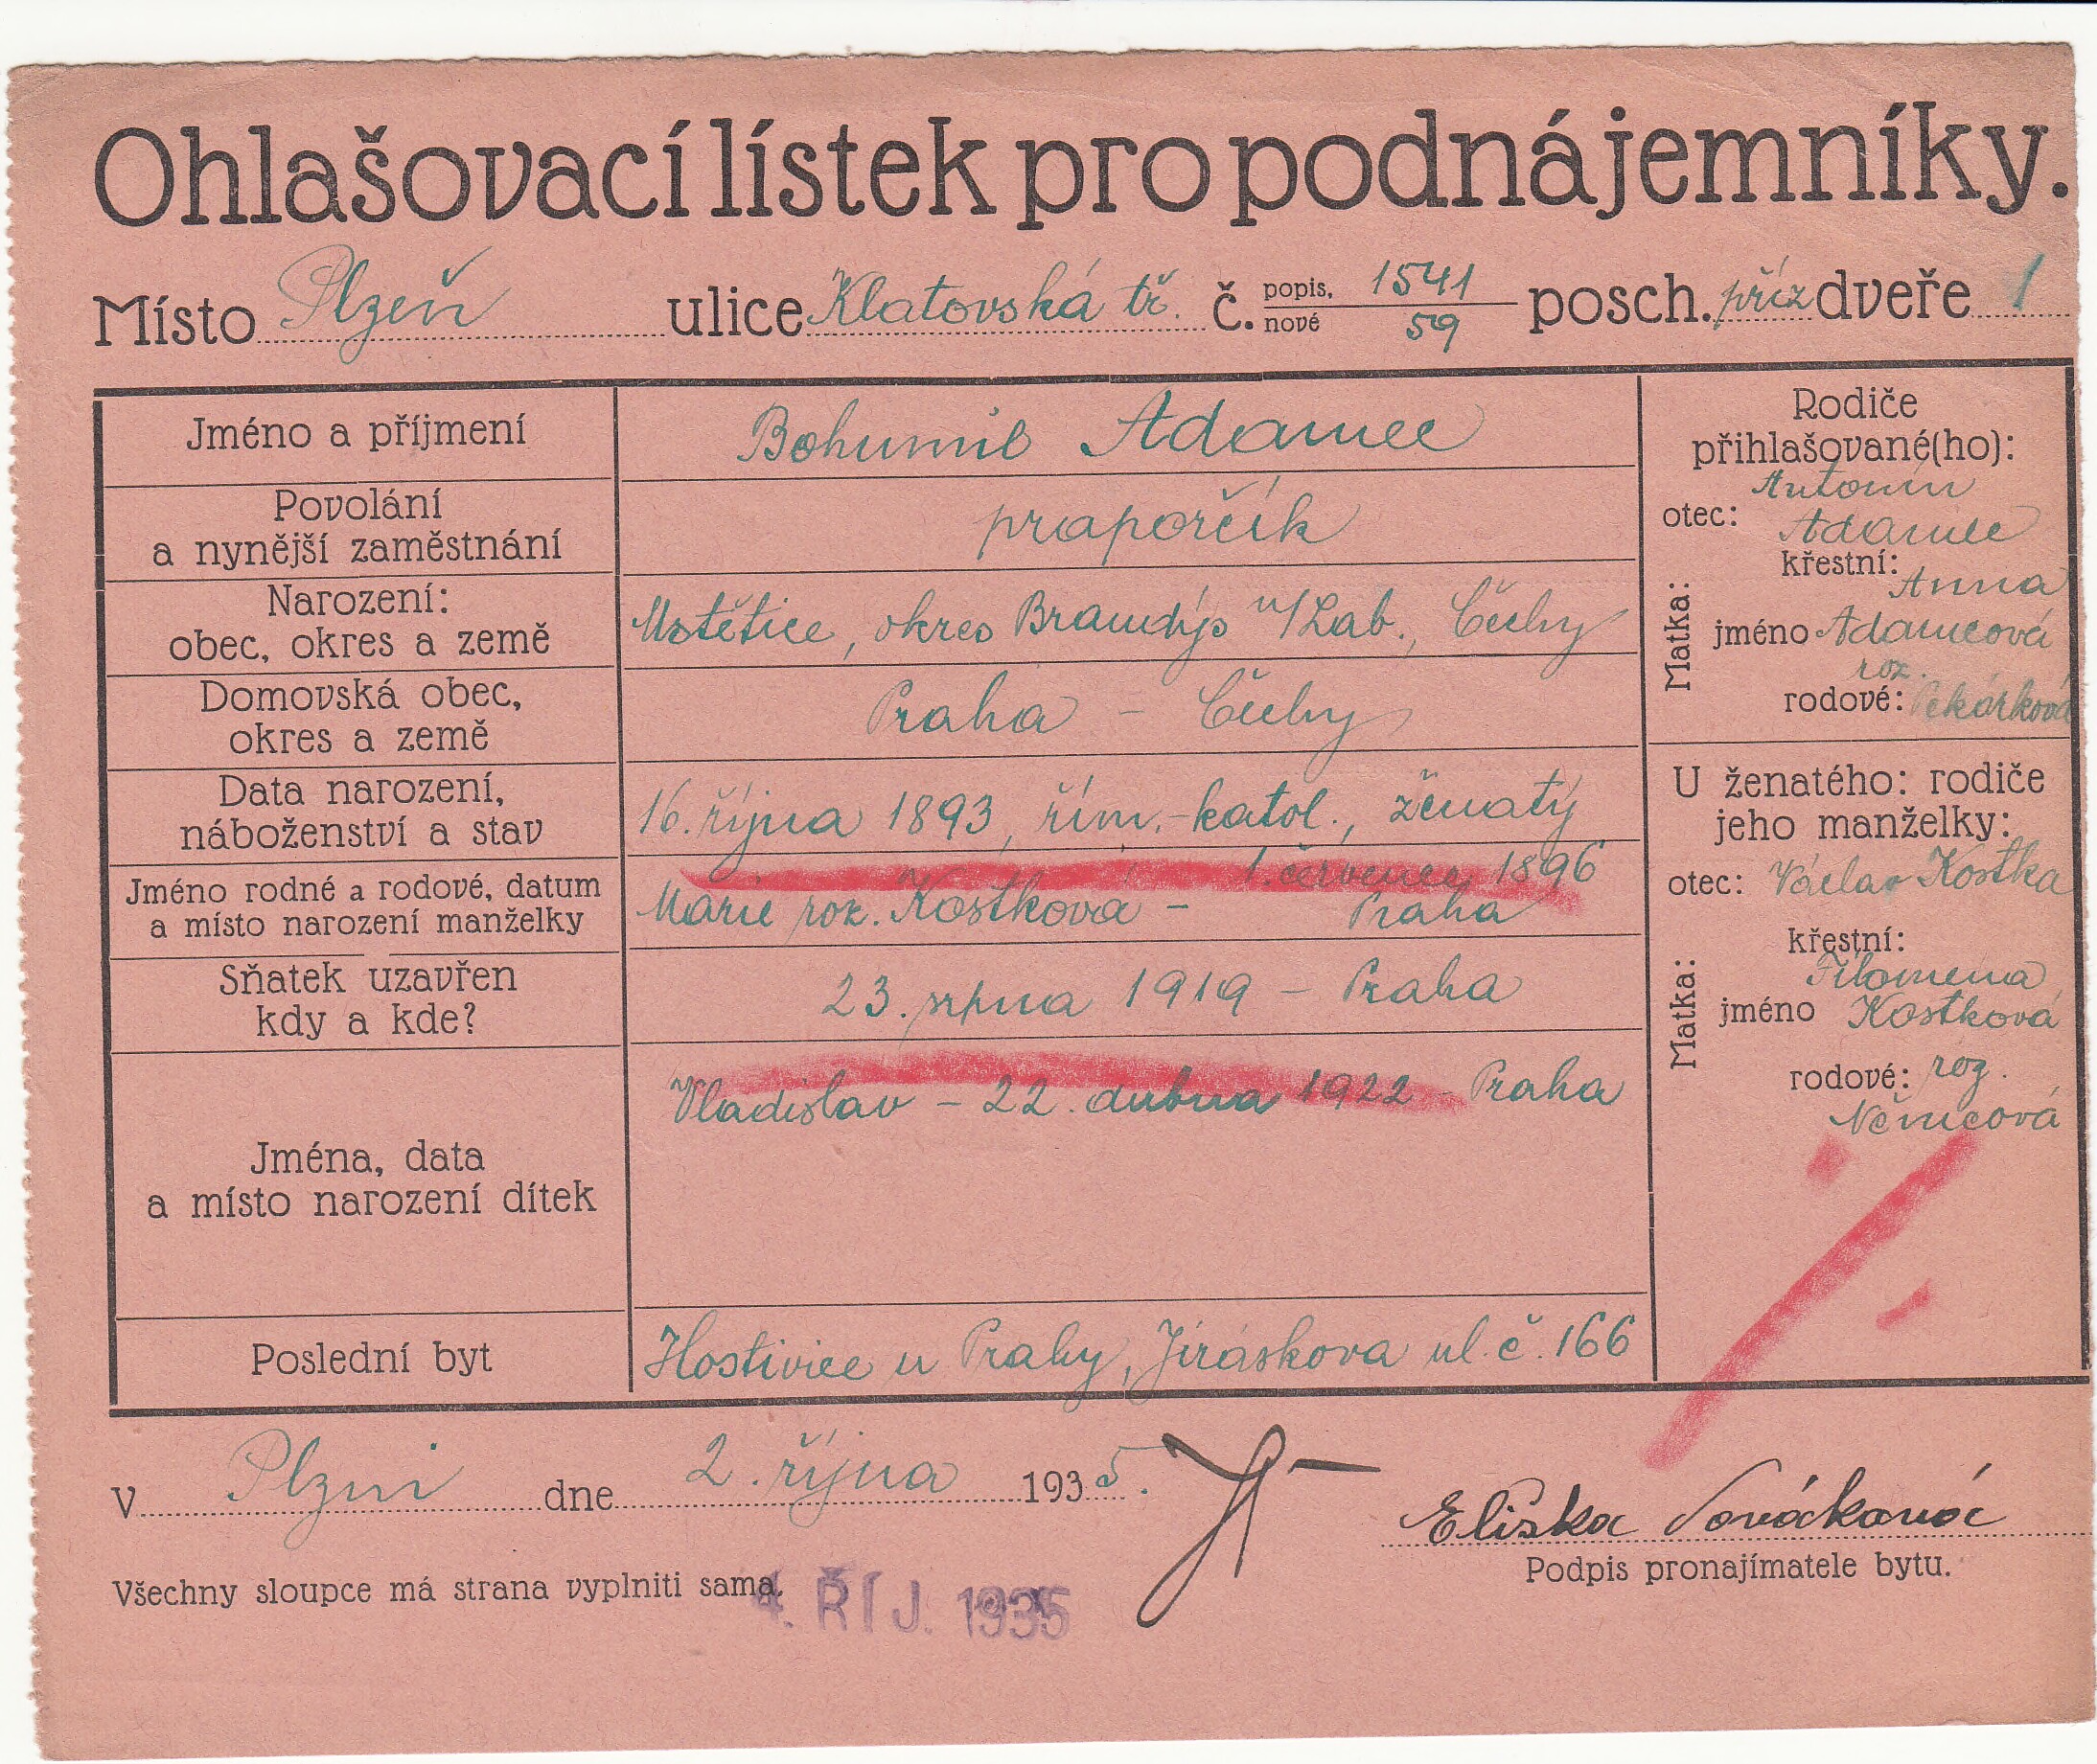 Ohlašovací lístek pro podnájemníky.
Místo Plzeň ulice Klatovská tř. č. popis. 1541 nové 59 posch. příz dveře 1
Jméno a příjmení
Bohumil Adamec
Povolání
a nynější zaměstnání
praporčík
Narození:
obec, okres a země
Mstětice, okres Brandýs n/Lab., Čechy
Domovská obec,
okres a země
Praha - Čechy
Data narození,
náboženství a stav
16. října 1893, řím.-katol., ženatý
Jméno rodné a rodové, datum
a místo narození manželky
1. červenec 1896
Marie roz. Kostková - Praha
Sňatek uzavřen
kdy a kde?
23. srpna 1919 - Praha
Jména, data
a místo narození dítek
Vladislav - 22. dubna 1922 - Praha
Poslední byt
Hostivice u Prahy, Jiráskova ul. č. 166
Rodiče
přihlašované(ho):
Antonín
otec: Adamec
Matka:
křestní: Anna
jméno Adamcová
roz.
rodové: Pekárková
U ženatého: rodiče
jeho manželky:
otec: Václav Kostka
Matka:
křestní:
Filomena
jméno Kostková
rodové: roz.
Němcová
V Plzni dne 2. října 1935.
Eliška Nováková
Podpis pronajímatele bytu.
Všechny sloupce má strana vyplniti sama.
4. ŘÍJ. 1935